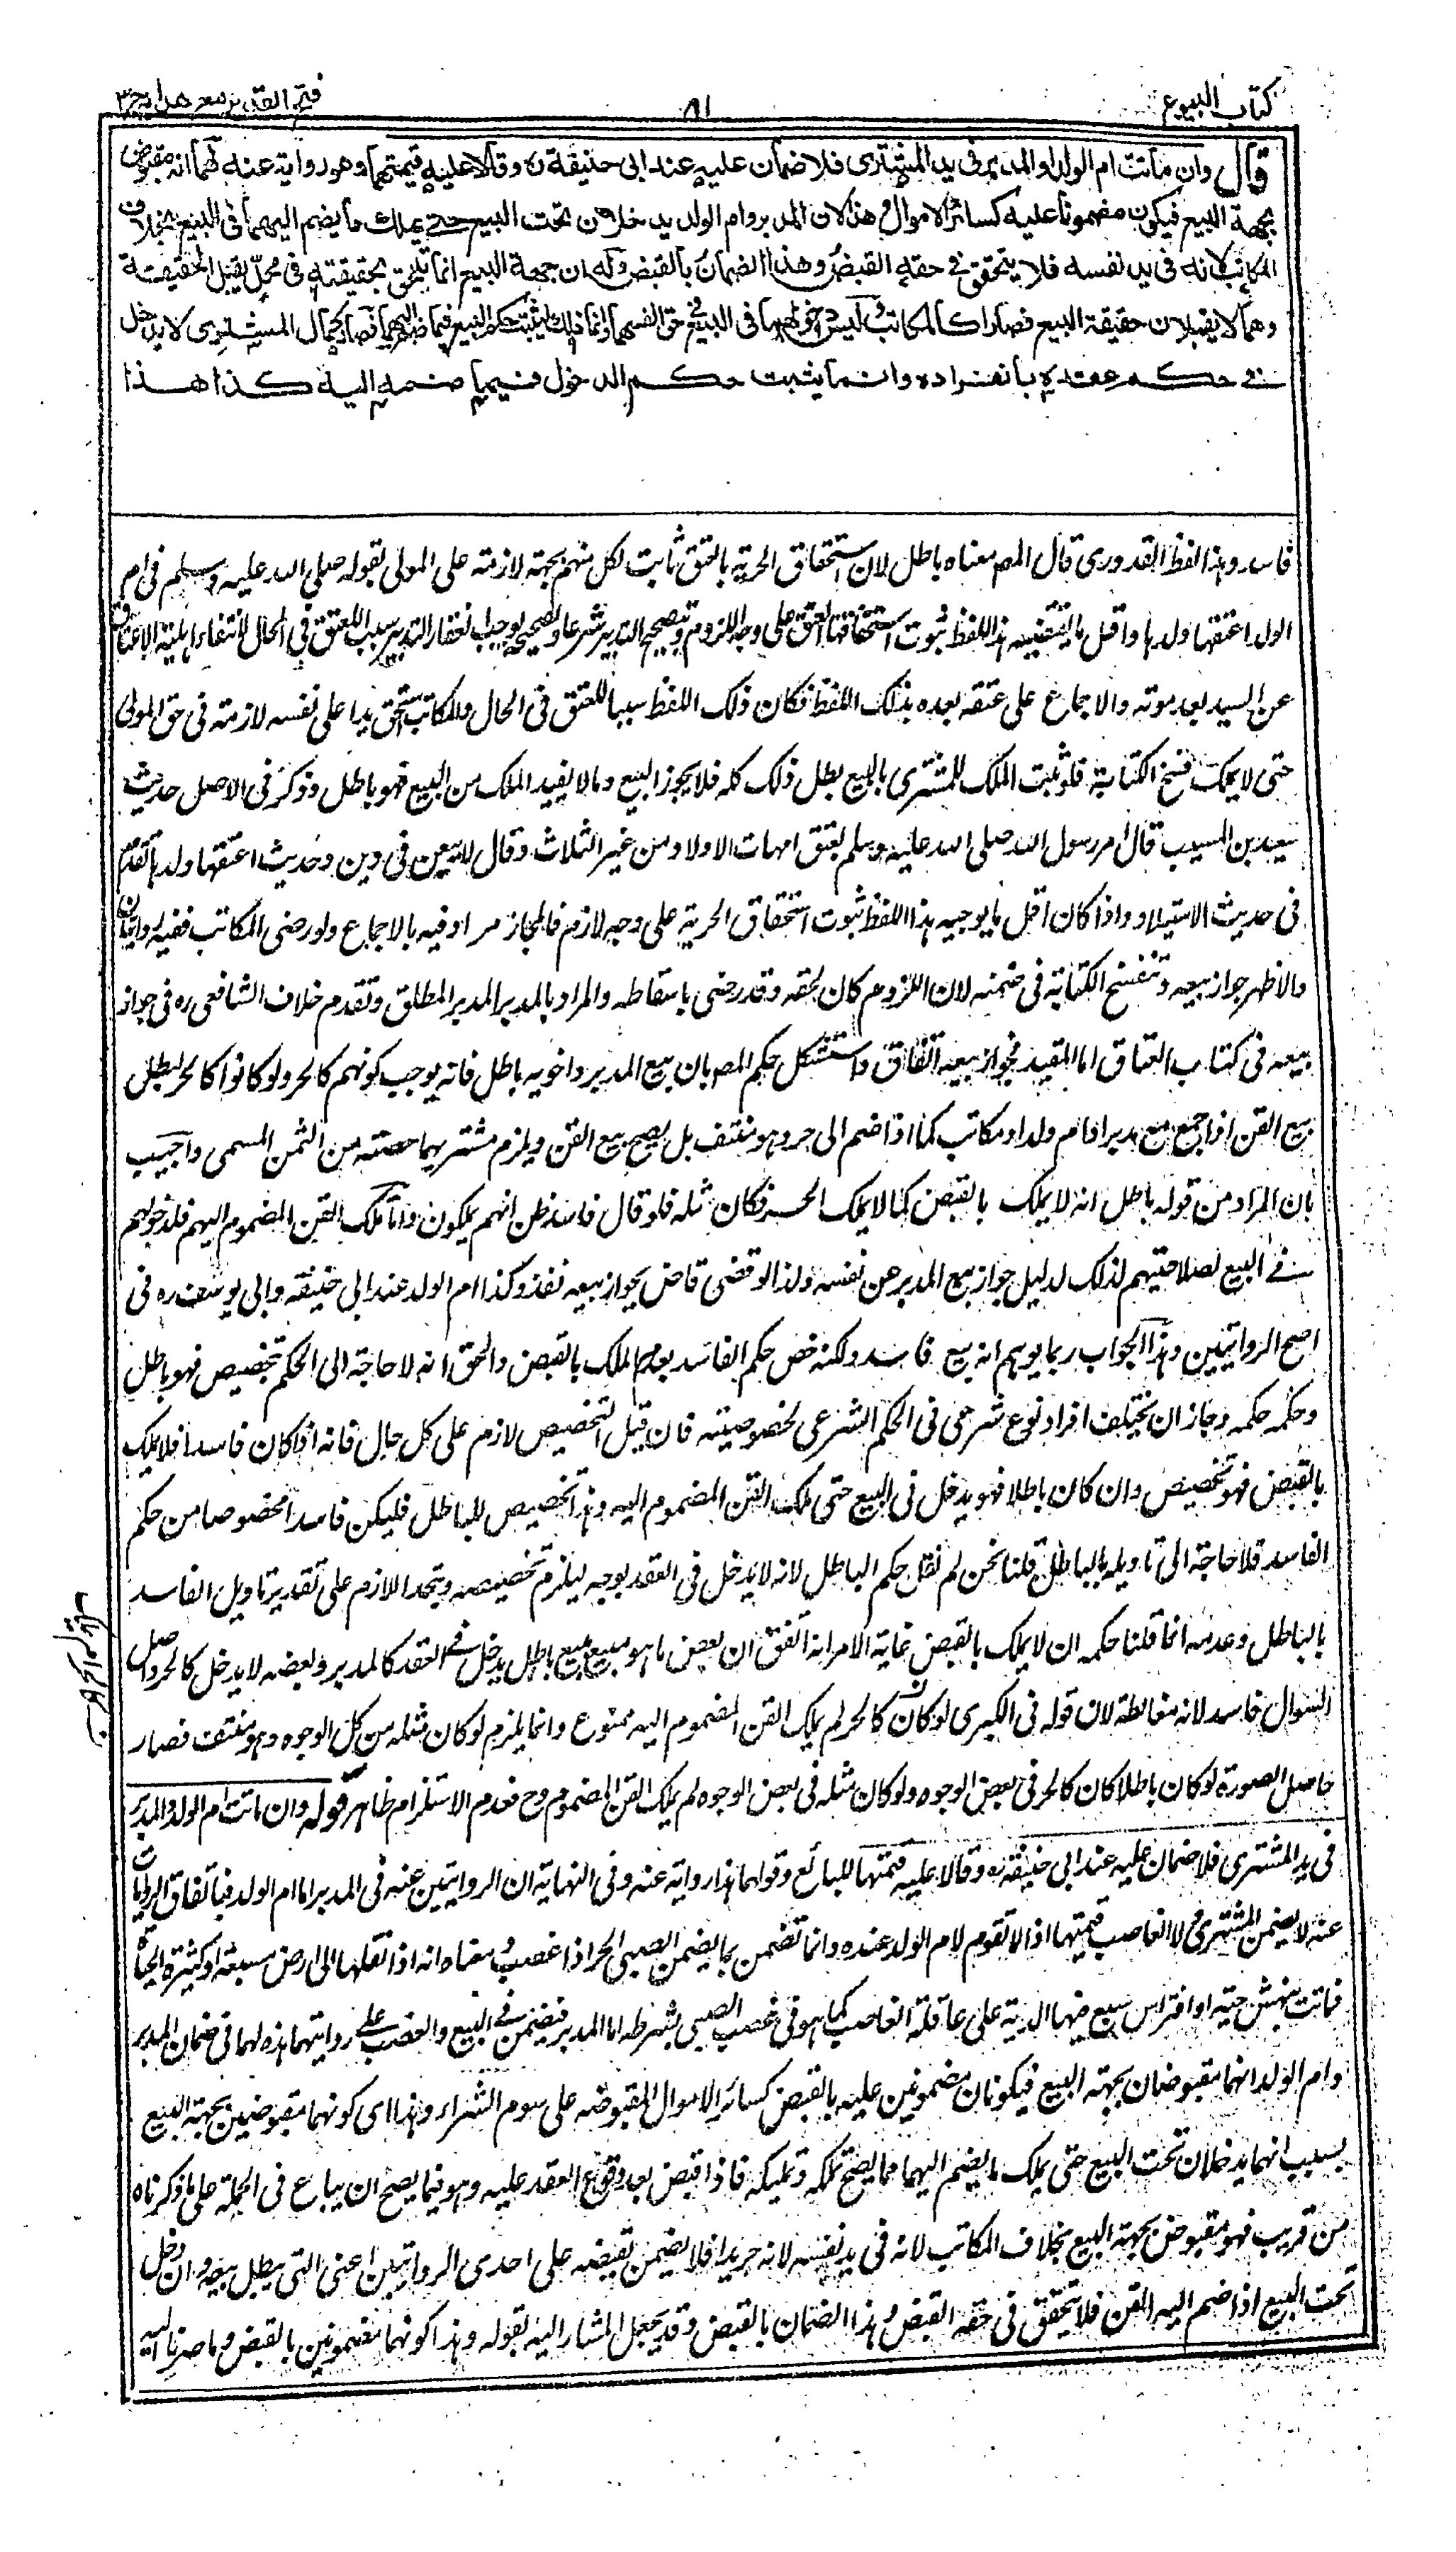 كتاب البيوع
٨١
فتح القدير مع هدايه ج٣
قال وان ماتت ام الولد او المدبر فى يد المشترى فلا ضمان عليه عند ابى حنيفة ره وقالا عليه قيمتهما وهو رواية عنه لهما انه مقبوض
بجهة البيع فيكون مضمونا عليه كسائر الاموال وهذا لان المدبر وام الولد يدخلان تحت البيع حتى يملك ما يضم اليهما فى البيع بخلاف
المكاتب لانه فى يد نفسه فلا يتحقق فى حقه القبض وهذا الضمان بالقبض وله ان جهة البيع انما تلحق بحقيقته فى محل يقبل الحقيقة
وهما لا يقبلان حقيقة البيع فصارا كالمكاتب وليس دخولهما فى البيع فى حق انفسهما وانما ذلك ليثبت حكم البيع فيما ضم اليهما فصار كمال المشترى لا يدخل
فى حكم عقده بانفراده وانما يثبت حكم الدخول فيما ضمه اليه كذا هذا
فاسد وهذا لفظ القدورى قال المص معناه باطل لان استحقاق الحرية بالعتق ثابت لكل منهم بجهة لازمة على المولى لقوله صلى الله عليه وسلم فى ام
الولد اعتقها ولدها واقل ما يقتضيه هذا اللفظ ثبوت استحقاقها العتق على وجه اللزوم وتصحيح التدبير شرعا وتصحيحه يوجب انعقاد التدبير سببا للعتق فى الحال لانتفاء اهلية الاعتاق
عن السيد بعد موته والاجماع على عتقه بعده بذلك اللفظ فكان ذلك اللفظ سببا للعتق فى الحال وللمكاتب استحق يدا على نفسه لازمة فى حق المولى
حتى لا يملك فسخ الكتابة فلو ثبت الملك للمشترى بالبيع بطل ذلك كله فلا يجوز البيع وما لا يفيد الملك من البيع فهو باطل وذكر فى الاصل حديث
سعيد بن المسيب قال امر رسول الله صلى الله عليه وسلم بعتق امهات الاولاد من غير الثلاث وقال لا يبعن فى دين وحديث اعتقها ولدها تقدم
فى حديث الاستيلاد واذا كان اقل ما يوجبه هذا اللفظ ثبوت استحقاق الحرية على وجه لازم فالمجاز مراد فيه بالاجماع ولو رضى المكاتب ففيه روايتان
والاظهر جواز بيعه وتنفسخ الكتابة فى ضمنه لان اللزوم كان لحقه وقد رضى باسقاطه والمراد بالمدبر المدبر المطلق وتقدم خلاف الشافعى ره فى جواز
بيعه فى كتاب العتاق اما المقيد فجواز بيعه اتفاق واستشكل حكم المص بان بيع المدبر واخويه باطل فانه يوجب كونهم كالحر ولو كانوا كالحر لبطل
بيع القن اذا جمع مع مدبر او ام ولد او مكاتب كما اذا ضم الى حر وهو منتف بل يصح بيع القن ويلزم مشتريهما حصته من الثمن المسمى واجيب
بان المراد من قوله باطل انه لا يملك بالقبض كما لا يملك الحر فكان مثله فلو قال فاسد ظن انهم يملكون واما ملك القن المضموم اليهم فلدخولهم
فى البيع لصلاحيتهم لذلك لدليل جواز بيع المدبر من نفسه ولذا لو قضى قاض بجواز بيعه نفذ وكذا ام الولد عند ابى حنيفة وابى يوسف ره فى
اصح الروايتين وهذا الجواب ربما يوهم انه بيع فاسد ولكنه خص حكم الفاسد بعدم الملك بالقبض والحق انه لا حاجة الى الحكم بتخصيص فهو باطل
وحكمه حكمه وجاز ان يختلف افراد نوع شرعى فى الحكم الشرعى لخصوصيته فان قيل التخصيص لازم على كل حال فانه اذا كان فاسدا فلا يملك
بالقبض فهو تخصيص وان كان باطلا فهو يدخل فى البيع حتى ملك القن المضموم اليه وهذا تخصيص للباطل فليكن فاسدا مخصوصا من حكم
الفاسد فلا حاجة الى تاويله بالباطل قلنا نحن لم نقل حكم الباطل لانه لا يدخل فى العقد بوجه ليلزم تخصيصه ويتحد اللازم على تقدير تاويل الفاسد
بالباطل وعدمه انما قلنا حكمه ان لا يملك بالقبض غاية الامر انه اتفق ان بعض ما هو مبيع بيع باطل يدخل فى العقد كالمدبر وبعضه لا يدخل كالحر واصل
السوال فاسد لانه مغالطة لان قوله فى الكبرى لو كان كالحر لم يملك القن المضموم اليه ممنوع وانما يلزم لو كان مثله من كل الوجوه وهو منتف فصار
حاصل الصورة لو كان باطلا كان كالحر فى بعض الوجوه ولو كان مثله فى بعض الوجوه لم يملك القن المضموم وح فعدم الاستلزام ظاهر قوله وان ماتت ام الولد والمدبر
فى يد المشترى فلا ضمان عليه عند ابى حنيفة ره وقالا عليه قيمتها للبائع وقولهما هذا رواية عنه وفى النهاية ان الروايتين عنه فى المدبر اما ام الولد فباتفاق الروايات
عنه لا يضمن المشترى ولا الغاصب قيمتها اذ لا تقوم لام الولد عنده وانما تضمن بما يضمن الصبى الحر اذا غصب ومعناه انه اذا نقلها الى ارض مسبعة او كثيرة الحيات
فماتت بنهش حية او افتراس سبع ضمنها الدية على عاقلة الغاصب كما هو فى غصب الصبى بشرطه اما المدبر فيضمن فى البيع والغصب على روايتهما هذه لهما فى ضمان المدبر
وام الولد انهما مقبوضان بجهة البيع فيكونان مضمونين عليه بالقبض كسائر الاموال المقبوضه على سوم الشراء وهذا اى كونهما مقبوضين بجهة البيع
بسبب انهما يدخلان تحت البيع حتى يملك ما يضم اليهما مما يصح تملكه وتمليكه فاذا قبض بعد وقوع العقد عليه وهو فيما يصح ان يباع فى الجملة على ما ذكرناه
من قريب فهو مقبوض بجهة البيع بخلاف المكاتب لانه فى يد نفسه لانه حر يدا فلا يضمن بقبضه على احدى الروايتين اعنى التى يبطل بيعه وان دخل
تحت البيع اذا ضم اليه القن فلا يتحقق فى حقه القبض وهذا الضمان بالقبض وقد يجعل المشار اليه بقوله وهذا كونهما مضمونين بالقبض وما صرنا اليه